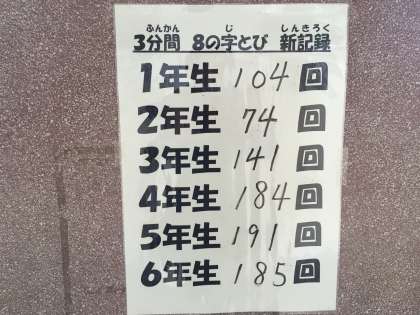 3分間 8の字とび 新記録
1年生 104 回
2年生 74 回
3年生 141 回
4年生 184 回
5年生 191 回
6年生 185 回